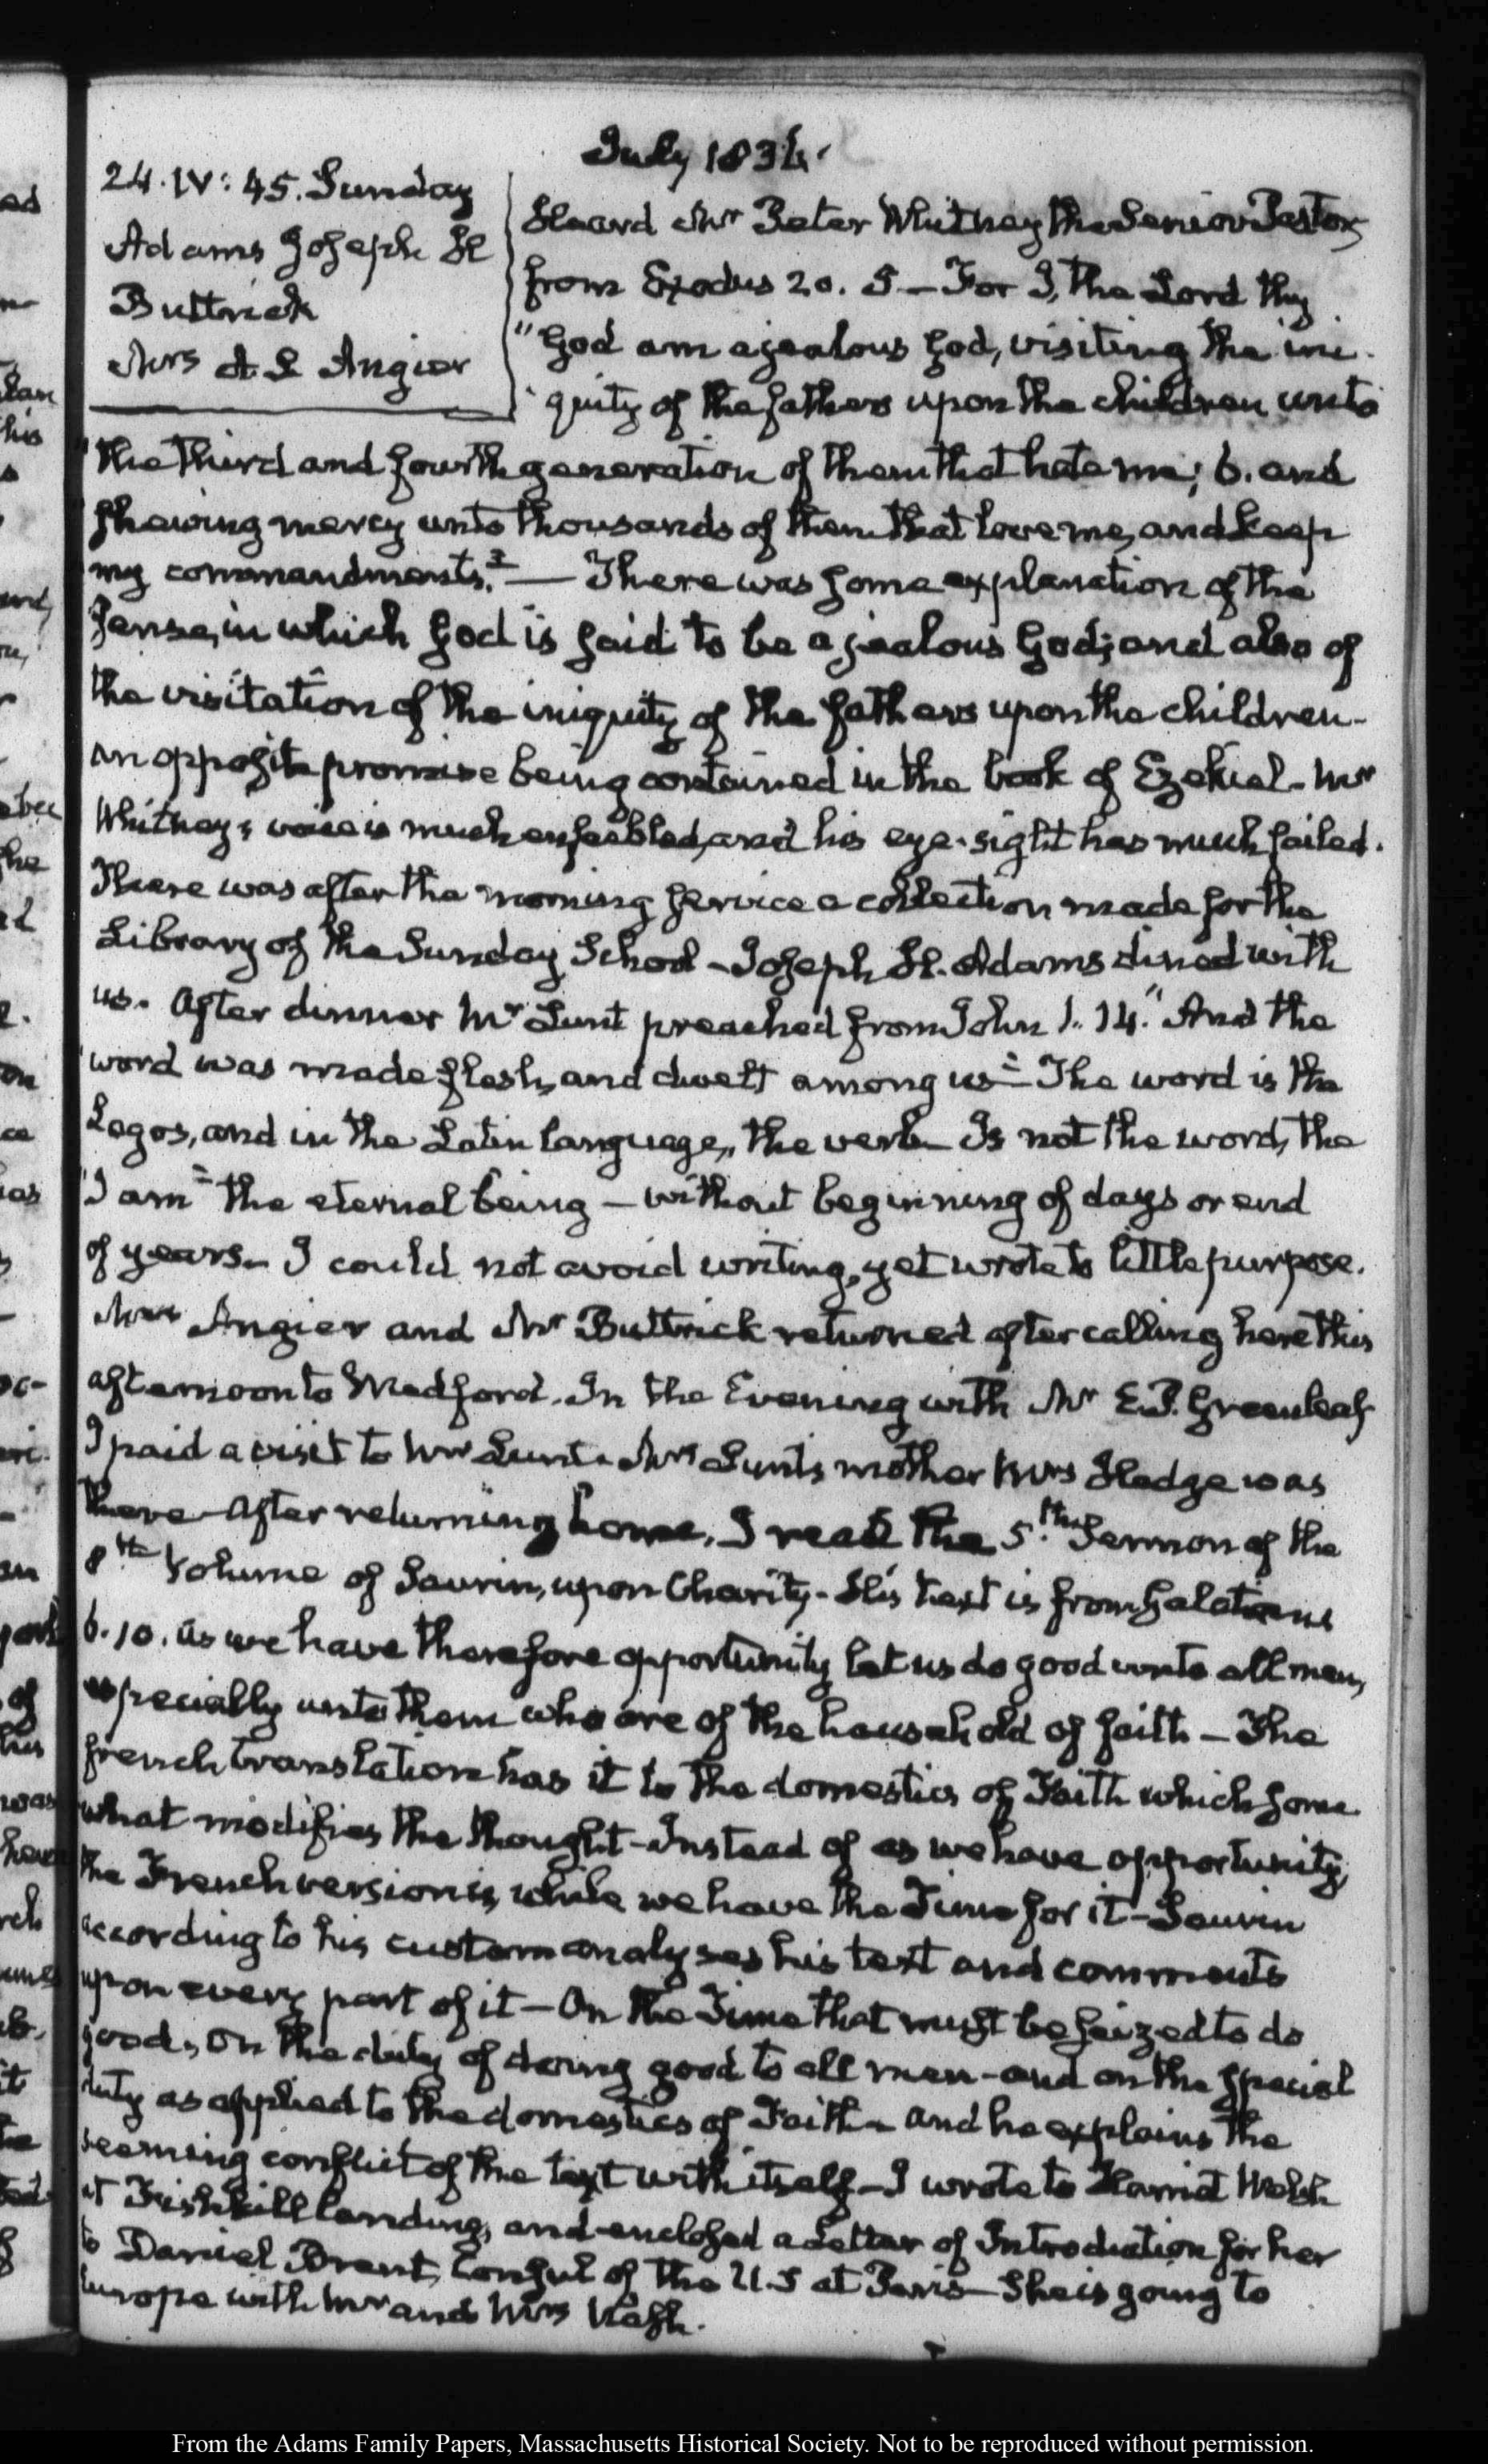 July 1836.
24. IV: 45. Sunday
Adams Joseph H
Buttrick
Mrs A L Angier
Heard Mr Peter Whitney the Senior Pastor,
from Exodus 20. 5 — For I, the Lord thy
"God am a jealous God, visiting the ini-
"quity of the fathers upon the children unto
"the third and fourth generation of them that hate me; 6. and
shewing mercy unto thousands of them that love me, and keep
my commandments." — There was some explanation of the
sense, in which God is said to be a jealous God; and also of
the visitation of the iniquity of the fathers upon the children-
an opposite promise being contained in the book of Ezekial - Mr
Whitney's voice is much enfeebled, and his eye-sight has much failed.
There was after the morning service a collection made for the
Library of the Sunday School - Joseph H. Adams dined with
us. After dinner Mr Lunt preached from John 1. 14. "And the
"word was made flesh, and dwelt among us" - The word is the
Logos, and in the Latin language, the verb - Is not the word, the
"I am" the eternal being — without beginning of days or end
of years - I could not avoid writing, yet wrote to little purpose.
Mrs Angier and Mr Buttrick returned after calling here this
afternoon to Medford. In the Evening with Mr E. P. Greenleaf
I paid a visit to Mr Lunt. Mrs Lunt's mother Mrs Hedge was
there - After returning home, I read the 5th Sermon of the
8th Volume of Saurin, upon Charity - His text is from Galatians
6. 10. as we have therefore opportunity let us do good unto all men,
especially unto them who are of the household of faith — The
french translation has it to the domestics of Faith which some
what modifies the thought - Instead of as we have opportunity,
the French version is, while we have the Time for it - Saurin
according to his custom analyses his text and comments
upon every part of it — On the Time that must be seized to do
good, on the duty of doing good to all men - and on the special
duty as applied to the domestics of Faith - and he explains the
seeming conflict of the text with itself - I wrote to Harriet Welsh
at Fishkill landing, and enclosed a Letter of Introduction for her
to Daniel Brent, Consul of the U.S at Paris - She is going to
Europe with Mr and Mrs
From the Adams Family Papers, Massachusetts Historical Society. Not to be reproduced without permission.